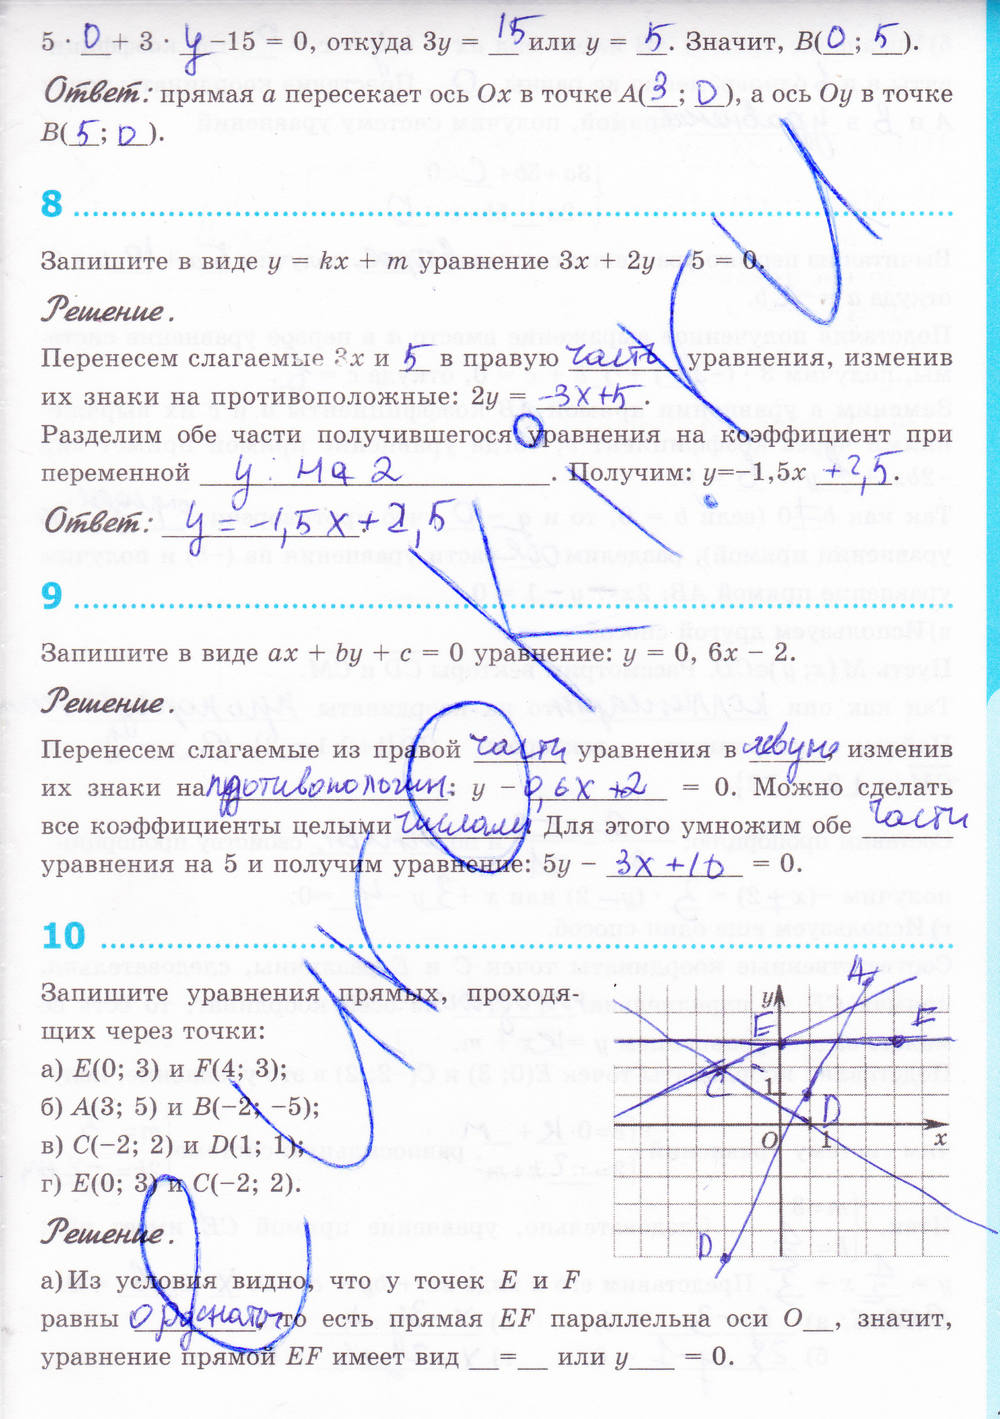 5 · 0 + 3 · y −15 = 0, откуда 3y = 15 или y = 5. Значит, B(0; 5).
Ответ: прямая a пересекает ось Ox в точке A(3; 0), а ось Oy в точке
B(5; 0).
8
Запишите в виде y = kx + m уравнение 3x + 2y − 5 = 0.
Решение.
Перенесем слагаемые 3x и 5 в правую часть уравнения, изменив
их знаки на противоположные: 2y = −3x+5.
Разделим обе части получившегося уравнения на коэффициент при
переменной y: на 2. Получим: y=−1,5x +2,5.
Ответ: y=−1,5x+2,5
9
Запишите в виде ax + by + c = 0 уравнение: y = 0, 6x − 2.
Решение.
Перенесем слагаемые из правой части уравнения в левую, изменив
их знаки на противоположн: y − 0,6x +2 = 0. Можно сделать
все коэффициенты целыми числами. Для этого умножим обе части
уравнения на 5 и получим уравнение: 5y − 3x+10 = 0.
10
Запишите уравнения прямых, проходя-
щих через точки:
а) E(0; 3) и F(4; 3);
б) A(3; 5) и B(−2; −5);
в) C(−2; 2) и D(1; 1);
г) E(0; 3) и C(−2; 2).
y A
E F
C 1 D
O 1 x
D
Решение.
а) Из условия видно, что у точек E и F
равны ординаты, то есть прямая EF параллельна оси O__, значит,
уравнение прямой EF имеет вид __=__ или y___ = 0.